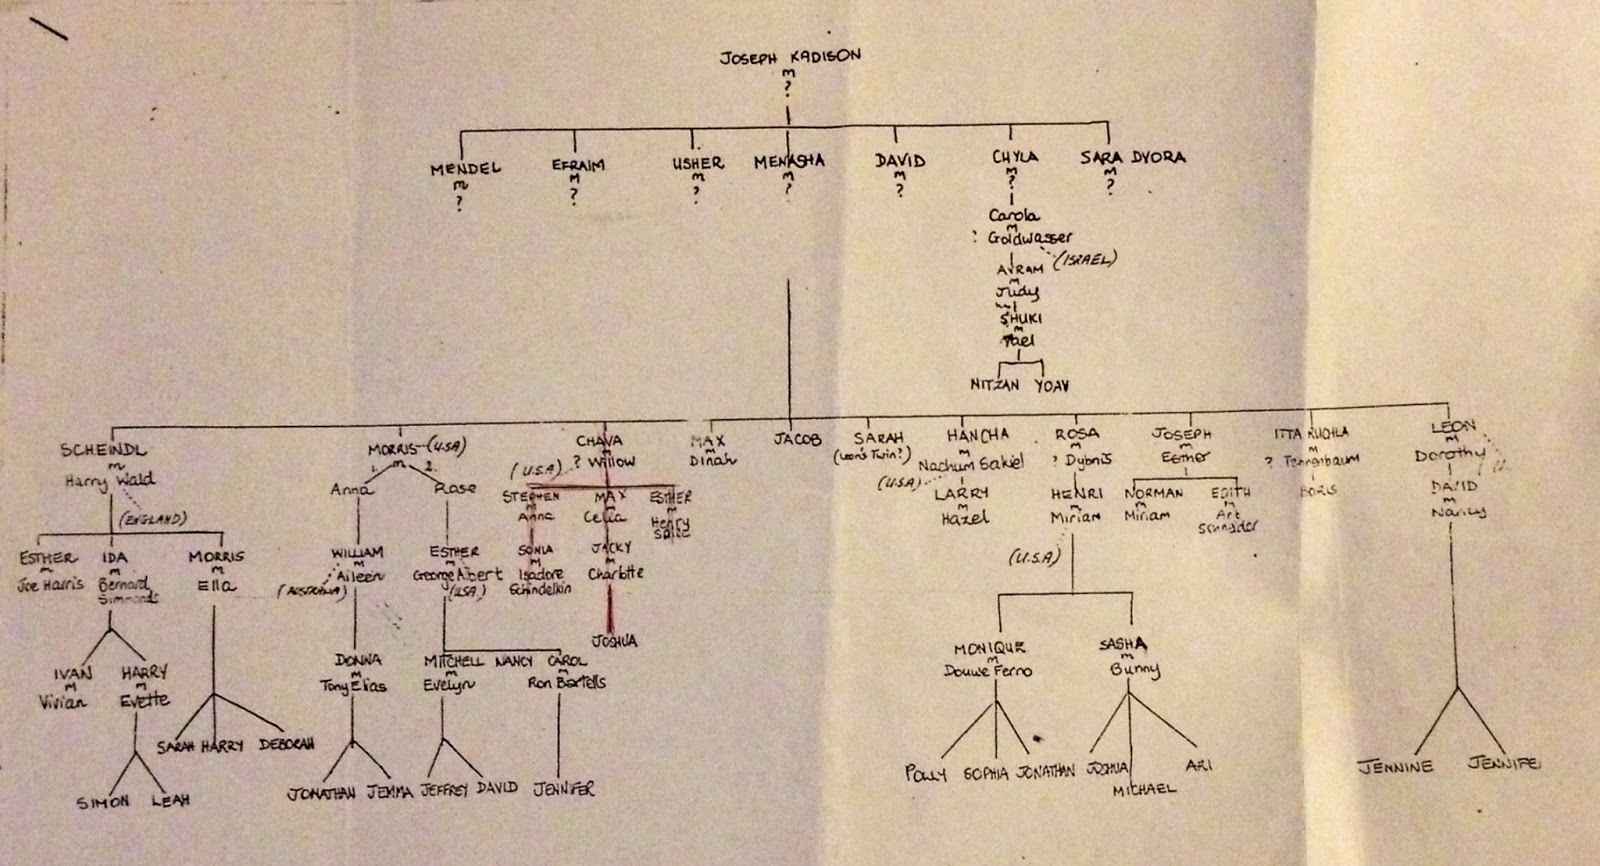 JOSEPH KADISON
m
?
MENDEL EFRAIM USHER MENASHA DAVID CHYLA SARA DVORA
m m m m m m m
? ? ? ? ? ? ?
Carola
m
? Goldwasser
(ISRAEL)
AVRAM
m
Judy
SHUKI
m
Yael
NITZAN YOAV
SCHEINDL MORRIS (U.S.A) CHAVA MAX JACOB SARAH HANCHA ROSA JOSEPH ITTA RUCHLA LEON
m 1. m 2. m m (Leon's Twin?) m m m m
Harry Wald ? Willow Dinah Nachum Sakiel ? Dybnis Esther ? Tennenbaum Dorothy
(ENGLAND) Anna Rose (U.S.A) (U.S.A)
STEPHEN MAX ESTHER LARRY HENRI NORMAN EDITH BORIS DAVID
m m m m m m m m
Anna Celia Henry Hazel Miriam Miriam Art Nancy
ESTHER IDA MORRIS
m m m
Joe Harris Bernard Simmonds Ella
WILLIAM ESTHER SONIA JACKY
m m m m
Aileen George Albert Isadore Schindelkin Charlotte
(U.S.A) (U.S.A)
JOSHUA
IVAN HARRY
m m
Vivian Evette
DONNA MITCHELL NANCY CAROL
m m m
Tony Elias Evelyn Ron Bartells
MONIQUE SASHA
m m
Douwe Ferno Bunny
SARAH HARRY DEBORAH
SIMON LEAH
JONATHAN JEMMA JEFFREY DAVID JENNIFER
POLLY SOPHIA JONATHAN JOSHUA MICHAEL ARI
JENNINE JENNIFE